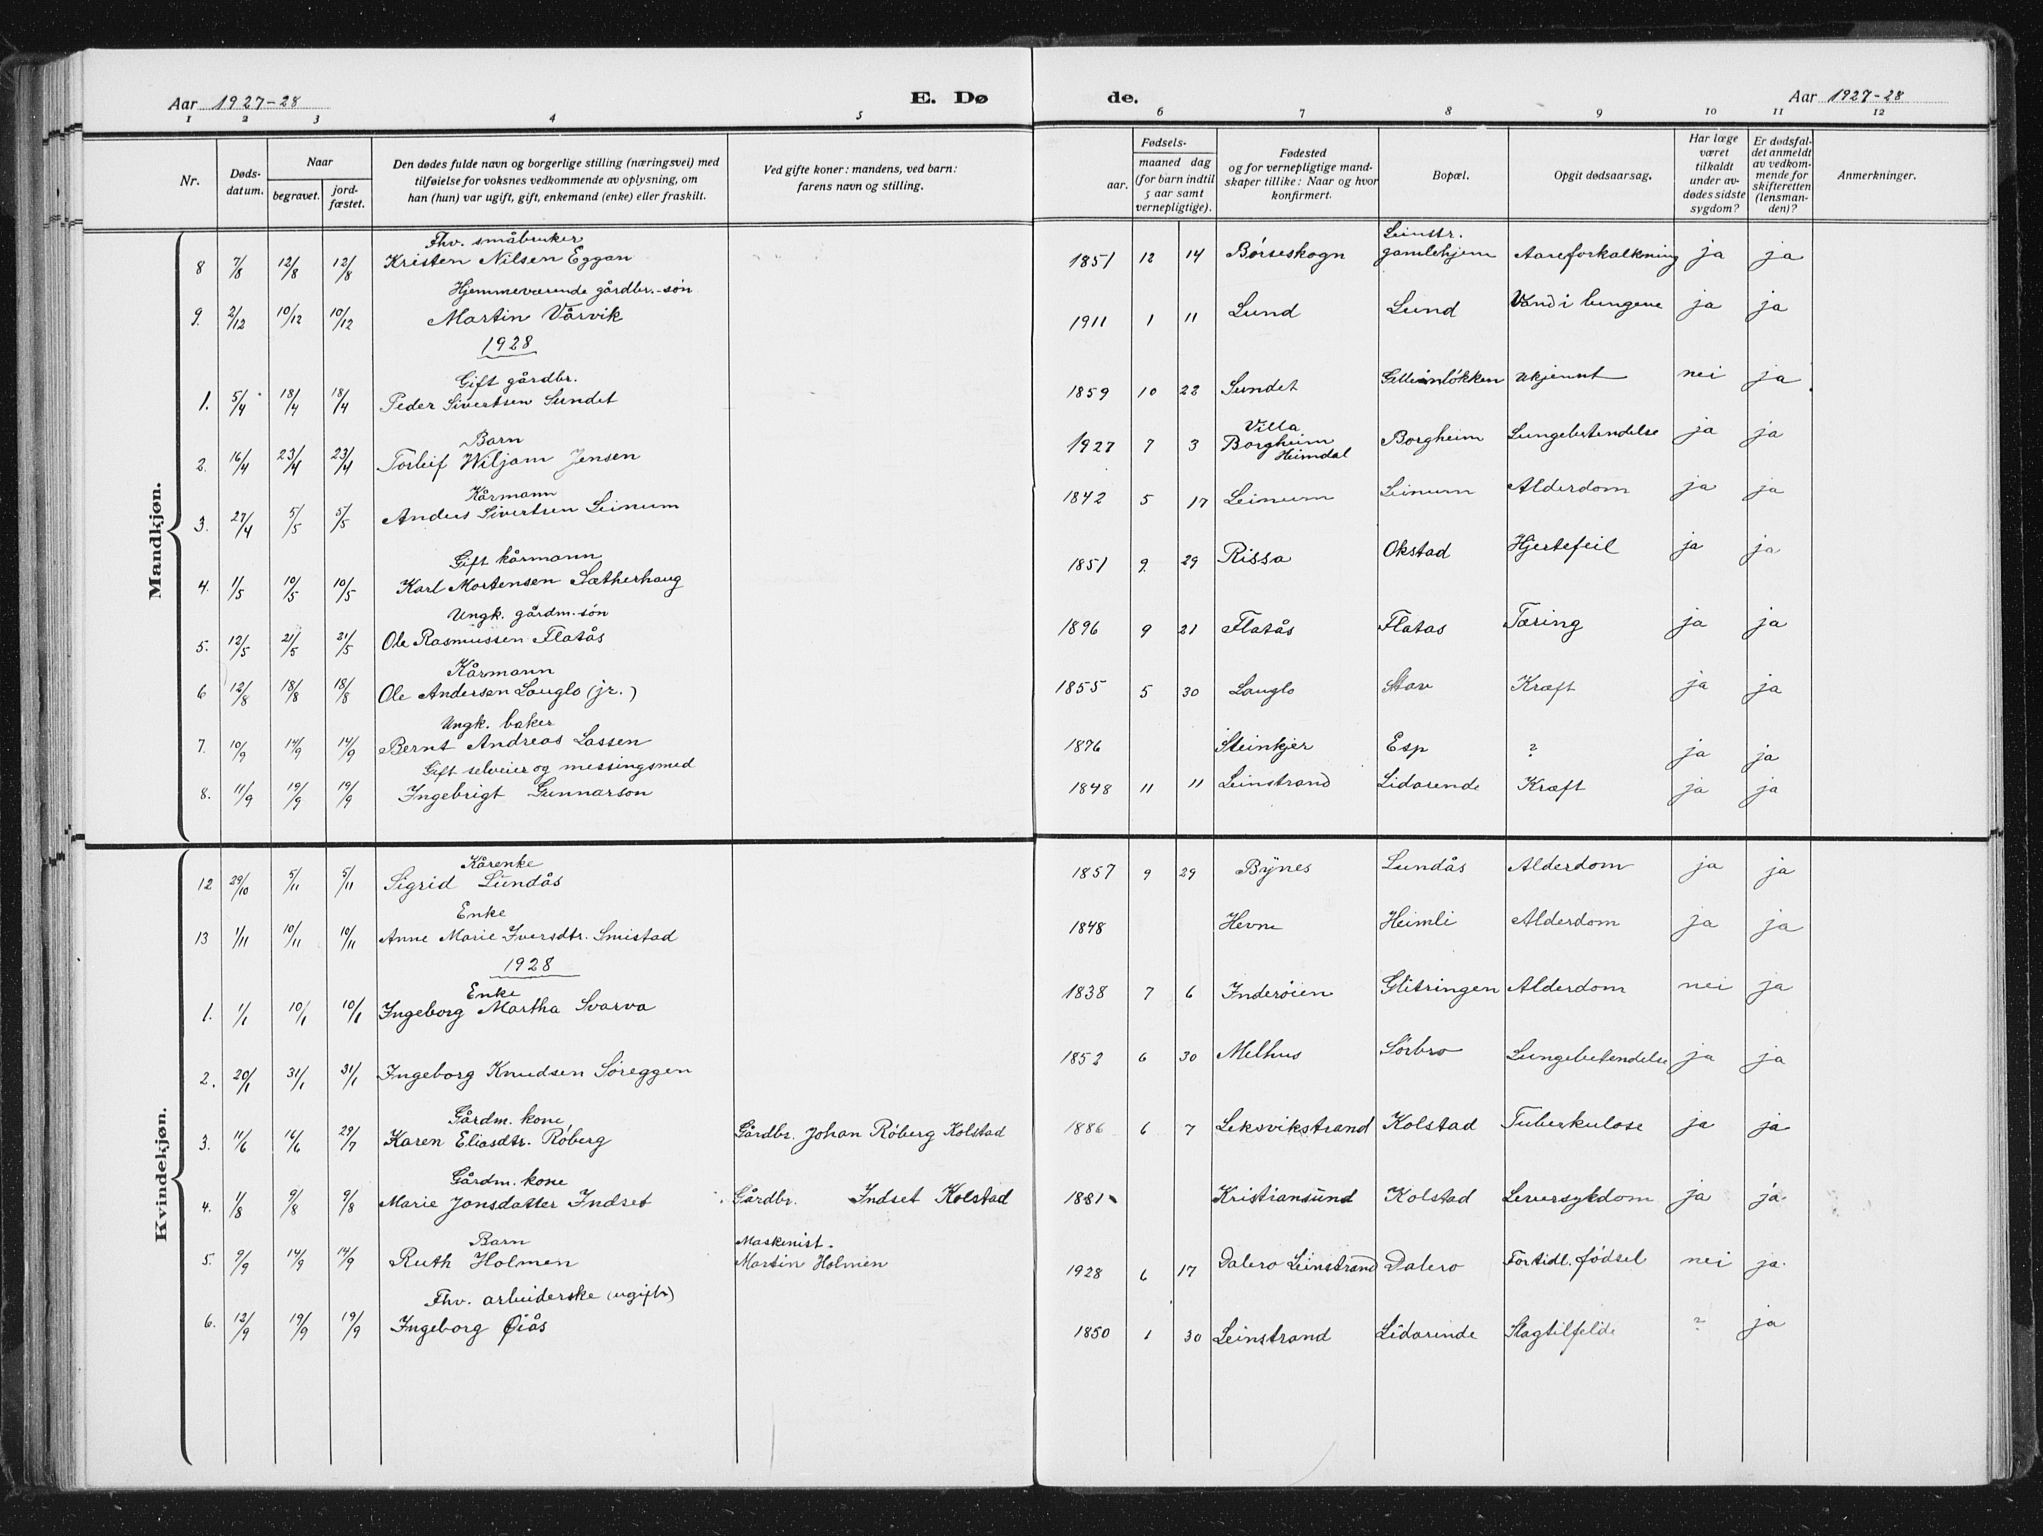 Aar 1927-28 E. Dø de. Aar 1927-28
1 2 3 4 5 6 7 8 9 10 11 12
Nr.
Døds-
datum.
Naar
begravet.
jord-
fæstet.
Den dødes fulde navn og borgerlige stilling (næringsvei) med
tilføielse for voksnes vedkommende av oplysning, om
han (hun) var ugift, gift, enkemand (enke) eller fraskilt.
Ved gifte koner: mandens, ved barn:
farens navn og stilling.
Fødsels-
aar.
maaned dag
(for barn indtil
5 aar samt
vernepligtige).
Fødested
og for vernepligtige mand-
skaper tillike: Naar og hvor
konfirmert.
Bopæl.
Opgit dødsaarsag.
Har læge
været
tilkaldt
under av-
dødes sidste
sygdom?
Er dødsfal-
det anmeldt
av vedkom-
mende for
skifteretten
(lensman-
den)?
Anmerkninger.
Mandkjøn.
Fhv. småbruker Leinstr.
8 7/8 12/8 12/8 Kristen Nilsen Eggan 1851 12 14 Børseskogn gamlehjem Aareforkalkning ja ja
Hjemmeværende gårdbr.-søn
9. 2/12 10/12 10/12 Martin Vårvik 1911 1 11 Lund Lund Vand i lungene ja ja
1928
Gift gårdbr.
1. 5/4 18/4 18/4 Peder Sivertsen Sundet 1859 10 22 Sundet ukjennt nei ja
Barn Villa
2. 16/4 23/4 23/4 Torleif Wiljam Jensen 1927 7 3 Borgheim Borgheim Lungebetendelse ja ja
Heimdal
Kårmann
3. 27/4 5/5 5/5 Anders Sivertsen Leinum 1842 5 17 Leinum Leinum Alderdom ja ja
Gift kårmann
4. 1/5 10/5 10/5 Karl Mortensen Sætherhaug 1851 9. 29 Rissa Okstad Hjertefeil ja ja
Ungk. gårdm.-søn
5. 12/5 21/5 21/5 Ole Rasmussen Flatås 1896 9 21 Flatås Flatas Tæring ja ja
Kårmann
6 12/8 18/8 18/8 Ole Andersen Lauglo (jr.) 1855 5 30 Lauglo Stav Kræft ja ja
Ungk. baker
7. 10/9 14/9 14/9 Bernt Andreas Lassen 1876 Steinkjer Esp ? ja ja
Gift selveier og messingsmed
8. 11/9 19/9 19/9 Ingebrigt Gunnarson 1848 11 11 Leinstrand Lidarende Kræft ja ja
Kvindekjøn.
Kårenke
12 29/10 5/11 5/11 Sigrid Lundås 1857 9 29 Bynes Lundås Alderdom ja ja
Enke
13 1/11 10/11 10/11 Anne Marie Iversdtr. Smistad 1848 Hevne Heimli Alderdom ja ja
1928
Enke
1. 1/1 10/1 10/1 Ingeborg Martha Svarva 1838 7 6 Inderøien Glitringen Alderdom nei ja
2. 20/1 31/1 31/1 Ingeborg Knudsen Søreggen 1852 6 30 Melhus Sørbro Lungebetendelse ja ja
Gårdm. kone
3. 11/6 16/6 29/7 Karen Eliasdtr. Røberg Gårdbr. Johan Røberg Kolstad 1886 6 7 Leksvikstrand Kolstad Tuberkulose ja ja
Gårdm. kone
4. 1/8 9/8 9/8 Marie Jonsdatter Indset Gårdbr. Indset Kolstad 1881 Kristiansund Kolstad Leversykdom ja ja
Barn Maskenist.
5. 9/9 14/9 14/9 Ruth Holmen Martin Holmen 1928 6 17 Dalero Leinstrand Dalero For tidl. fødsel nei ja
Fhv. arbeiderske (ugift)
6. 12/9 19/9 19/9 Ingeborg Øiås 1850 1 30 Leinstrand Lidarende Slagtilfelde ? ja